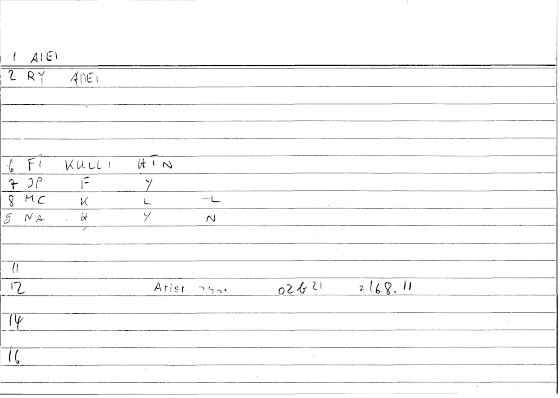 1 AIEI
2 RY AIIEI
6 FI KULLI HIN
7 JP F Y
8 MC K L -L
5 NA H Y N
11
12 Arist 02621 2168.11
14
16